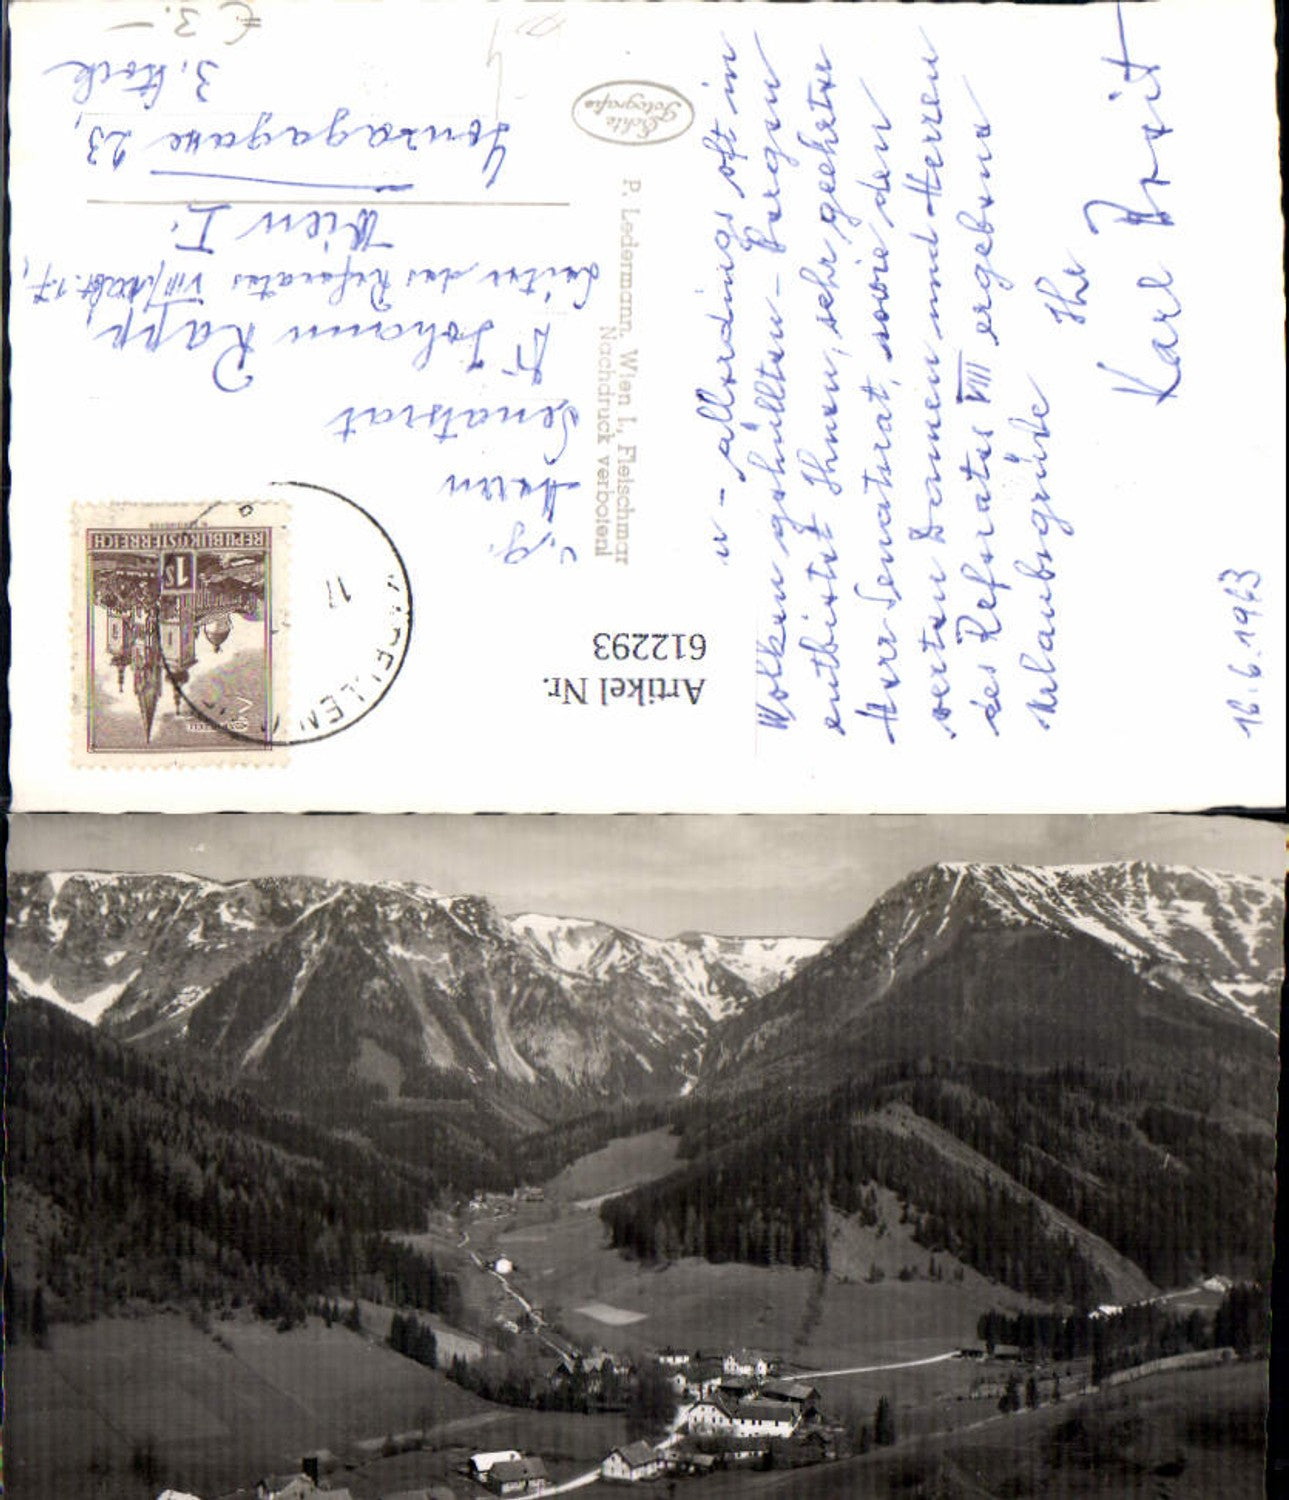 16.6.1963
u – allerdings oft in
Wolken gehüllten – Bergen
entbietet Ihnen, sehr geehrter
Herr Senatsrat, sowie den
werten Damen und Herren
des Referates VIII ergebene
Urlaubsgrüße
Ihr
Karl
Artikel Nr.
612293
P. Ledermann, Wien I., Fleischmar
Nachdruck verboten!
Echte
Fotografie
KAPELLEN
17
REPUBLIK ÖSTERREICH
1 S
Herrn
Senatsrat
Dr Johann Rapp,
Leiter des Referates VIII/
Wien I.
Gonzagagasse 23,
3. Stock
€ 3.–